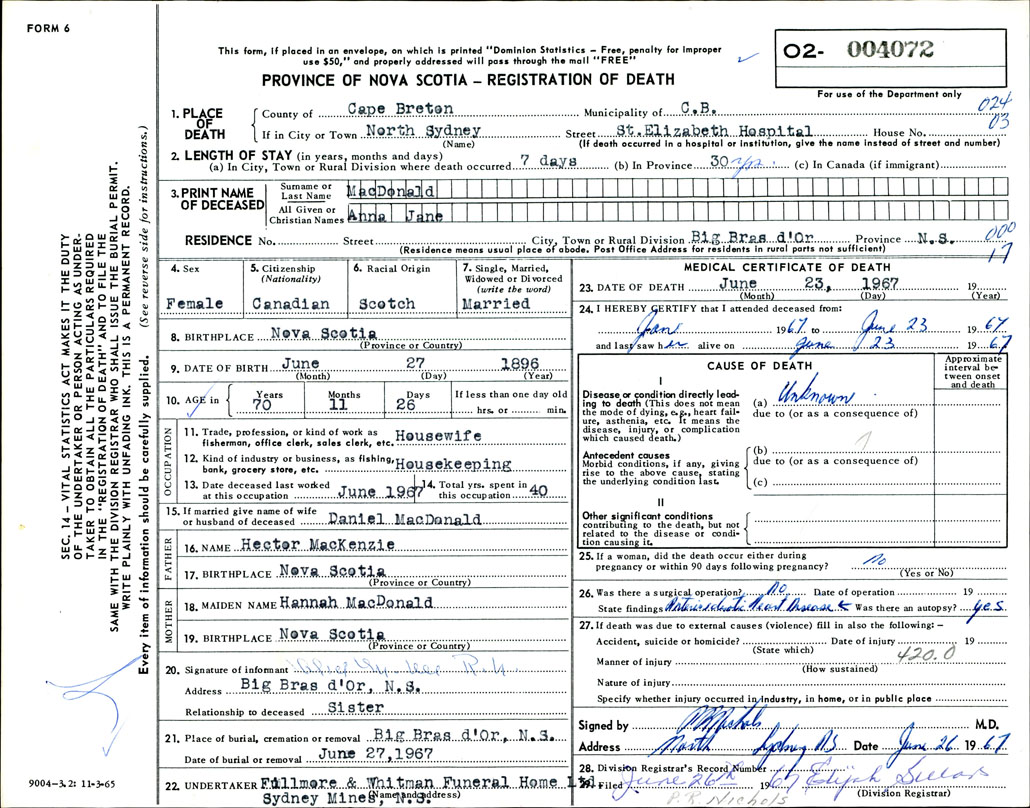 FORM 6
This form, if placed in an envelope, on which is printed "Dominion Statistics – Free, penalty for improper
use $50," and properly addressed will pass through the mail "FREE"
O2- 004072
PROVINCE OF NOVA SCOTIA – REGISTRATION OF DEATH
For use of the Department only
024
03
1. PLACE OF DEATH
County of Cape Breton Municipality of C.B.
If in City or Town North Sydney Street St.Elizabeth Hospital House No.
(Name) (If death occurred in a hospital or institution, give the name instead of street and number)
2. LENGTH OF STAY (in years, months and days)
(a) In City, Town or Rural Division where death occurred 7 days (b) In Province 30 yrs. (c) In Canada (if immigrant)
3. PRINT NAME OF DECEASED
Surname or Last Name MacDonald
All Given or Christian Names Anna Jane
RESIDENCE No. Street City, Town or Rural Division Big Bras d'Or Province N.S.
(Residence means usual place of abode. Post Office Address for residents in rural parts not sufficient)
000
17
SEC. 14 – VITAL STATISTICS ACT MAKES IT THE DUTY
OF THE UNDERTAKER OR PERSON ACTING AS UNDER-
TAKER TO OBTAIN ALL THE PARTICULARS REQUIRED
IN THE "REGISTRATION OF DEATH" AND TO FILE THE
SAME WITH THE DIVISION REGISTRAR WHO SHALL ISSUE THE BURIAL PERMIT.
WRITE PLAINLY WITH UNFADING INK. THIS IS A PERMANENT RECORD.
Every item of information should be carefully supplied. (See reverse side for instructions.)
4. Sex
Female
5. Citizenship
(Nationality)
Canadian
6. Racial Origin
Scotch
7. Single, Married,
Widowed or Divorced
(write the word)
Married
8. BIRTHPLACE Nova Scotia
(Province or Country)
9. DATE OF BIRTH June 27 1896
(Month) (Day) (Year)
10. AGE in Years Months Days If less than one day old
70 11 26 hrs. or min.
OCCUPATION
11. Trade, profession, or kind of work as
fisherman, office clerk, sales clerk, etc. Housewife
12. Kind of industry or business, as fishing,
bank, grocery store, etc. Housekeeping
13. Date deceased last worked
at this occupation June 1967
14. Total yrs. spent in
this occupation 40
15. If married give name of wife
or husband of deceased Daniel MacDonald
FATHER
16. NAME Hector MacKenzie
17. BIRTHPLACE Nova Scotia
(Province or Country)
MOTHER
18. MAIDEN NAME Hannah MacDonald
19. BIRTHPLACE Nova Scotia
(Province or Country)
20. Signature of informant
Address Big Bras d'Or, N.S.
Relationship to deceased Sister
21. Place of burial, cremation or removal Big Bras d'Or, N.S.
Date of burial or removal June 27,1967
22. UNDERTAKER Fillmore & Whitman Funeral Home Ltd.
Sydney Mines, N.S.
(Name and address)
9004–3.2: 11-3-65
MEDICAL CERTIFICATE OF DEATH
23. DATE OF DEATH June 23, 1967 19
(Month) (Day) (Year)
24. I HEREBY CERTIFY that I attended deceased from:
Jan 1967 to June 23 1967
and last saw her alive on June 23 1967
CAUSE OF DEATH
Approximate
interval be-
tween onset
and death
I
Disease or condition directly lead-
ing to death (This does not mean
the mode of dying, e.g., heart fail-
ure, asthenia, etc. It means the
disease, injury, or complication
which caused death.)
(a) Unknown
due to (or as a consequence of)
Antecedent causes
Morbid conditions, if any, giving
rise to the above cause, stating
the underlying condition last.
(b)
due to (or as a consequence of)
(c)
II
Other significant conditions
contributing to the death, but not
related to the disease or condi-
tion causing it.
25. If a woman, did the death occur either during
pregnancy or within 90 days following pregnancy? No
(Yes or No)
26. Was there a surgical operation? No Date of operation 19
State findings Arteriosclerotic Heart Disease Was there an autopsy? yes.
27. If death was due to external causes (violence) fill in also the following: –
Accident, suicide or homicide? Date of injury 19
(State which)
420.0
Manner of injury
(How sustained)
Nature of injury
Specify whether injury occurred in industry, in home, or in public place
Signed by M.D.
Address North Sydney NS Date June 26 1967
28. Division Registrar's Record Number
29. Filed June 26th 1967 Elijah
(Division Registrar)
P.R. Nichols